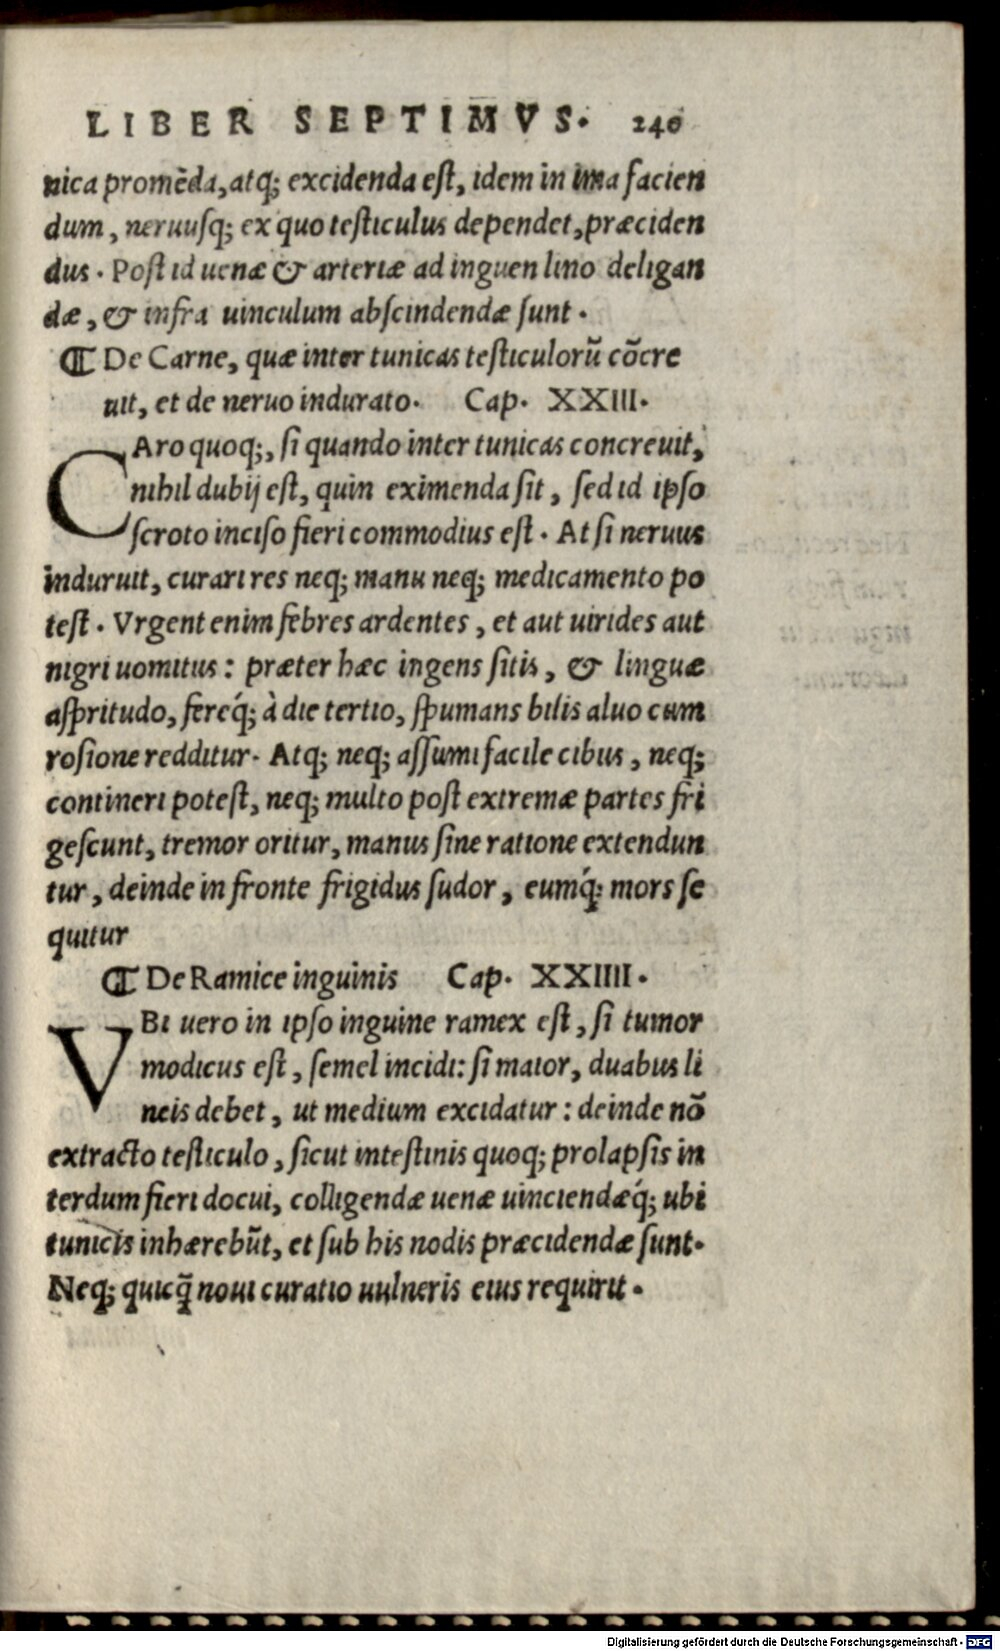 LIBER SEPTIMVS. 240
nica promēda, atq; excidenda eſt, idem in ima facien
dum, neruuſq; ex quo teſticulus dependet, præciden
dus. Poſt id uenæ & arteriæ ad inguen lino deligan
dæ, & infra uinculum abſcindendæ ſunt.
¶ De Carne, quæ inter tunicas teſticulorū cōcre
uit, et de neruo indurato. Cap. XXIII.
CAro quoq;, ſi quando inter tunicas concreuit,
nihil dubij eſt, quin eximenda ſit, ſed id ipſo
ſcroto inciſo fieri commodius eſt. At ſi neruus
induruit, curari res neq; manu neq; medicamento po
teſt. Vrgent enim febres ardentes, et aut uirides aut
nigri uomitus: præter hæc ingens ſitis, & linguæ
aſpritudo, fereq́; à die tertio, ſpumans bilis aluo cum
roſione redditur. Atq; neq; aſſumi facile cibus, neq;
contineri poteſt, neq; multo poſt extremæ partes fri
geſcunt, tremor oritur, manus ſine ratione extendun
tur, deinde in fronte frigidus ſudor, eumq́; mors ſe
quitur
¶ De Ramice inguinis Cap. XXIIII.
VBi uero in ipſo inguine ramex eſt, ſi tumor
modicus eſt, ſemel incidi: ſi maior, duabus li
neis debet, ut medium excidatur: deinde nō
extracto teſticulo, ſicut inteſtinis quoq; prolapſis in
terdum fieri docui, colligendæ uenæ uinciendæq́; ubi
tunicis inhærebūt, et ſub his nodis præcidendæ ſunt.
Neq; quicq̃ noui curatio uulneris eius requirit.
Digitalisierung gefördert durch die Deutsche Forschungsgemeinschaft - DFG